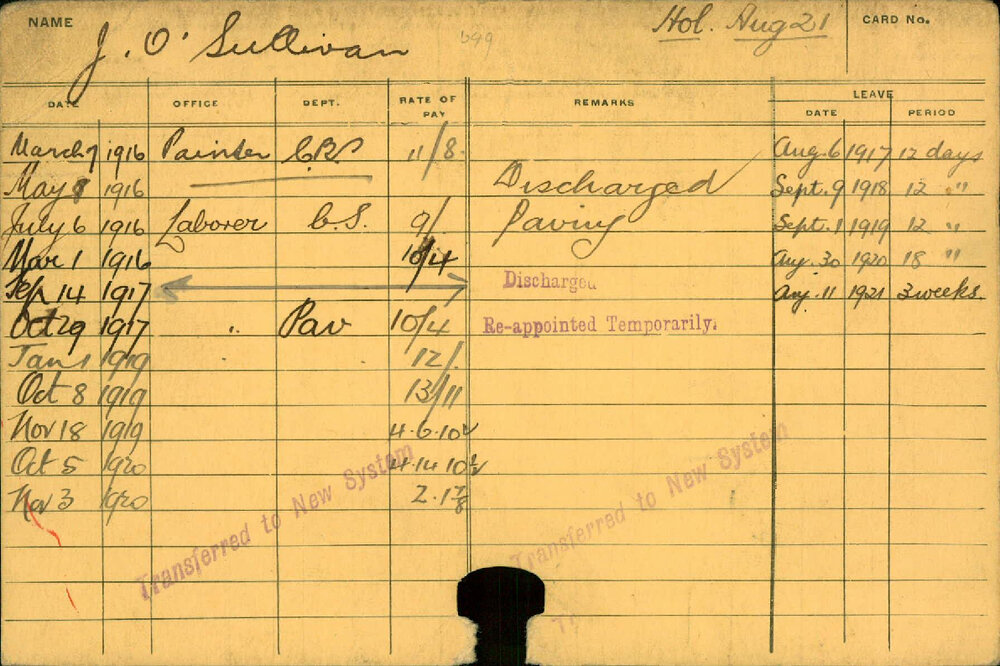 NAME J. O'Sullivan 599 Hol. Aug 21 CARD No.
LEAVE
DATE OFFICE DEPT. RATE OF PAY REMARKS DATE PERIOD
March 7 1916 Painter 11/8 Aug. 6 1917 12 days
May 8 1916 Discharged Sept. 9 1918 12 "
July 6 1916 Laborer C.S. 9/. Paving Sept. 1 1919 12 "
Mar 1 1916 10/4 Aug. 30 1920 18 "
Sep 14 1917 Discharged Aug. 11 1921 3 weeks.
Oct 29 1917 " Pav 10/4 Re-appointed Temporarily.
Jan 1 1919 " 12/.
Oct 8 1919 13/11
Nov 18 1919 4.6.10½
Oct 5 1920 4.14.10½
Nov 3 1920 2.1⅞
Transferred to New System
Transferred to New System